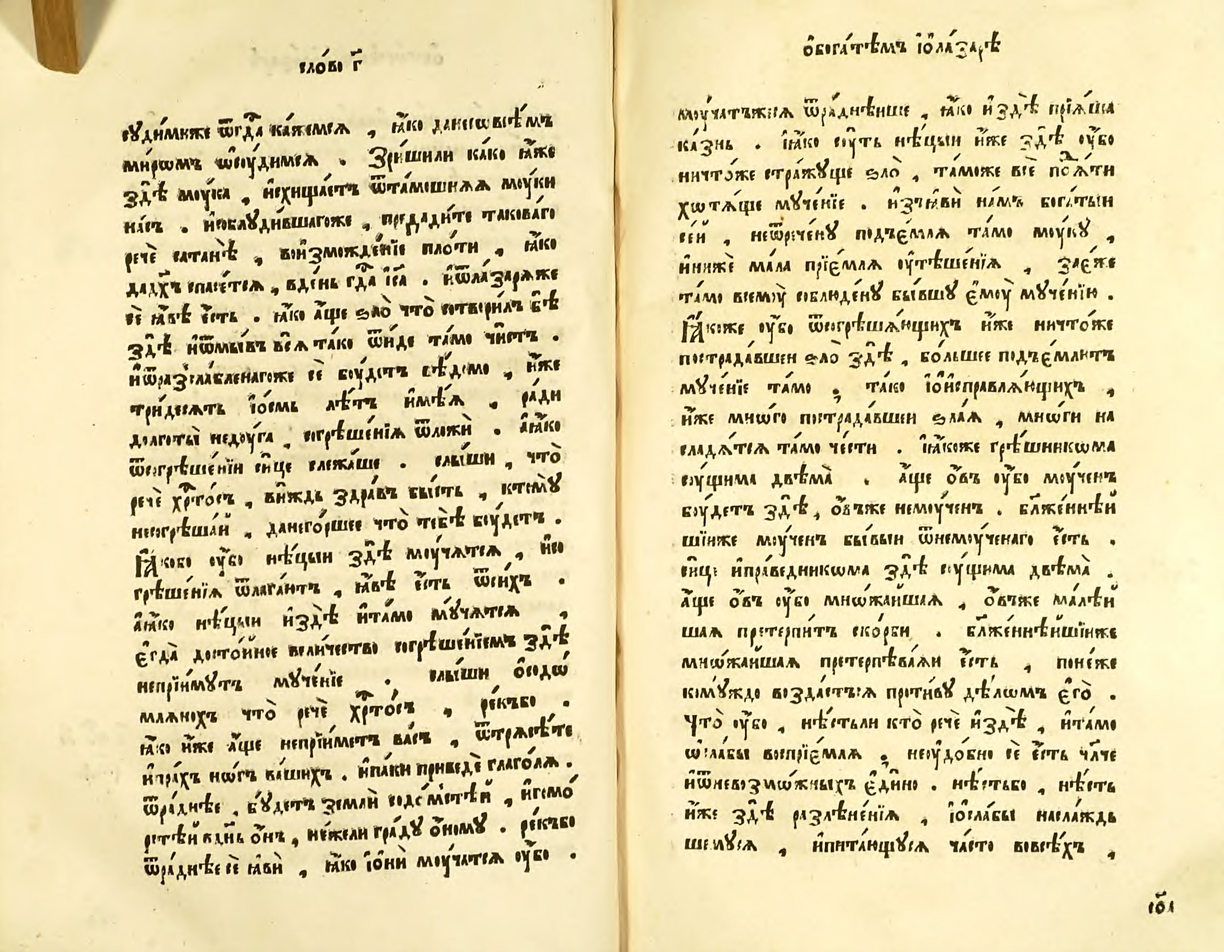 сло́во г҃
су́димиже ѿгда̀ ка́жемсѧ , ꙗ҆́ко данесовсѣ́мъ
ми́ромъ ѡ҆су́димсѧ . Зри́шили ка́ко ꙗ҆́же
здѣ̀ мо́ука , и҆схища́етъ ѿта́мошнѧѧ мо́уки
на́съ . и҆соблуди́вшагоже , преда́дите такова́го
речѐ сатанѣ̀ , воизможде́нїе пло́ти , ꙗ҆́ко
дад꙯хъ спасе́тсѧ , вде́нь гд҇а і҆с҃а . и҆ѡла́зарѧже
сѐ ꙗ҆́вѣ є҆́сть . ꙗ҆́ко а҆́ще ѕло̀ что̀ сотвори́лъ бѣ̀
здѣ̀ и҆ѡмы́въ всѧ̀ та́ко ѿи́де та́мо чи́стъ .
и҆ѡразсла́бленагоже сѐ бо́удетъ вѣ́домо , и҆́же
три́десѧть і҆о́смь лѣ́тъ и҆мѣ́ѧ , ра́ди
долготы̀ недо́уга , согрѣше́нїѧ ѿложѝ . а҆ꙗ҆́ко
ѿсогрѣше́нїи си́це слежа́ше . слы́ши , что̀
речѐ хрⷭ҇то́съ , ви́ждь здра́въ бы́сть , ктомꙋ̀
несогрѣша́й , данего́ршее что̀ тебѣ̀ бо́удетъ .
Ꙗ҆́кобо оу҆́бо нѣ́цыи здѣ̀ мо́учѧтсѧ , и҆со
грѣше́нїѧ ѿлага́ютъ , ꙗ҆́вѣ є҆́сть ѿси́хъ .
а҆ꙗ҆́ко нѣ́цыи и҆здѣ̀ и҆та́мо мꙋ́чѧтсѧ ,
є҆гда̀ досто́йное вели́чество согрѣше́нїемъ здѣ̀
непрїи́мутъ мꙋче́нїе . слы́ши ѻ҆содѡ
млѧнохъ что̀ речѐ хрⷭ҇то́съ , ре́къбо .
ꙗ҆́ко и҆́же а҆́ще непрїи́метъ ва́съ , ѿтрѧсѣ́те
и҆пра́хъ но́гъ ва́шихъ . и҆па́ки приведѐ глаго́лѧ .
ѿра́днѣе , бꙋ́детъ землѝ содо́мстѣй , и҆гомо́
рстѣй вдн҃ь ѻ҆́нъ , не́жели гра́ду ѻ҆но́мꙋ . ре́къбо
ѿра́днѣе сѐ ꙗ҆вѝ , ꙗ҆́ко і҆ѻ҆нѝ мо́учатсѧ оу҆́бо .
ѻ҆бога́тѣмъ і҆ѻ҆ла́зарѣ
мо́учатъжесѧ ѿра́днѣише , ꙗ҆́ко и҆здѣ̀ прїѧ́ша
ка́знь . і҆ꙗ҆́ко со́уть нѣ́цыи и҆́же здѣ̀ оу҆́бо
ничто́же стра́жꙋще ѕло̀ , та́може всѐ поⷭ҇ѧ́ти
хотѧ́ще мꙋче́нїе . и҆зъꙗ҆вѝ на́мъ бога́тыи
се́й , неѿрече́нꙋ подъе́млѧ та́мо мо́укꙋ ,
и҆нижѐ ма́ла прїе́млѧ оу҆тѣше́нїѧ , занє́же
та́мо всемо́у соблюде́нꙋ бы́вшꙋ є҆мо́у мꙋче́нїю .
Ꙗ҆́коже оу҆́бо ѿсогрѣша́ющихъ и҆́же ничто́же
пострада́вшеи ѕло̀ здѣ̀ , бо́льшее подъе́млютъ
мꙋче́нїе та́мо , та́ко і҆ѻ҆исправлѧ́ющихъ ,
и҆́же мно́го пострада́вшеи ѕла́ѧ , мно́ги на
сладѧ́тсѧ та́мо че́сти . і҆ꙗ҆́коже грѣ́шникома
со́ущима двѣма̀ . а҆́ще ѻ҆́въ оу҆́бо мо́ученъ
бо́удетъ здѣ̀ , ѻ҆́въже немо́ученъ . бл҃же́ннѣй
ши́иже мо́ученъ бы́выи ѿнемо́ученаго є҆́сть .
си́це и҆пра́ведникома здѣ̀ со́ущима двѣма̀ .
а҆́ще ѻ҆́въ оу҆́бо множа́йшаѧ , ѻ҆́въже мале́й
шаѧ претерпи́тъ ско́рби . бл҃же́ннѣйши́иже
множа́йшаѧ претерпѣва́ѧи є҆́сть , поне́же
комꙋ́ждо возда́стсѧ проти́вꙋ дѣло́мъ є҆гѡ̀ .
Что̀ оу҆́бо , нѣ́стьли кто̀ речѐ и҆здѣ̀ , и҆та́мо
ѡ҆сла́бы воспрїе́млѧ , неоудо́бно сѐ є҆́сть чл҃че
и҆ѡневозмо́жныхъ є҆ди́но . нѣ́стьбо , нѣ́сть
и҆́же здѣ̀ разлѣне́нїѧ , і҆ѻсла́бы наслажд
шемꙋсѧ , и҆пита́ющꙋсѧ ча́сто вовсѣ́хъ ,